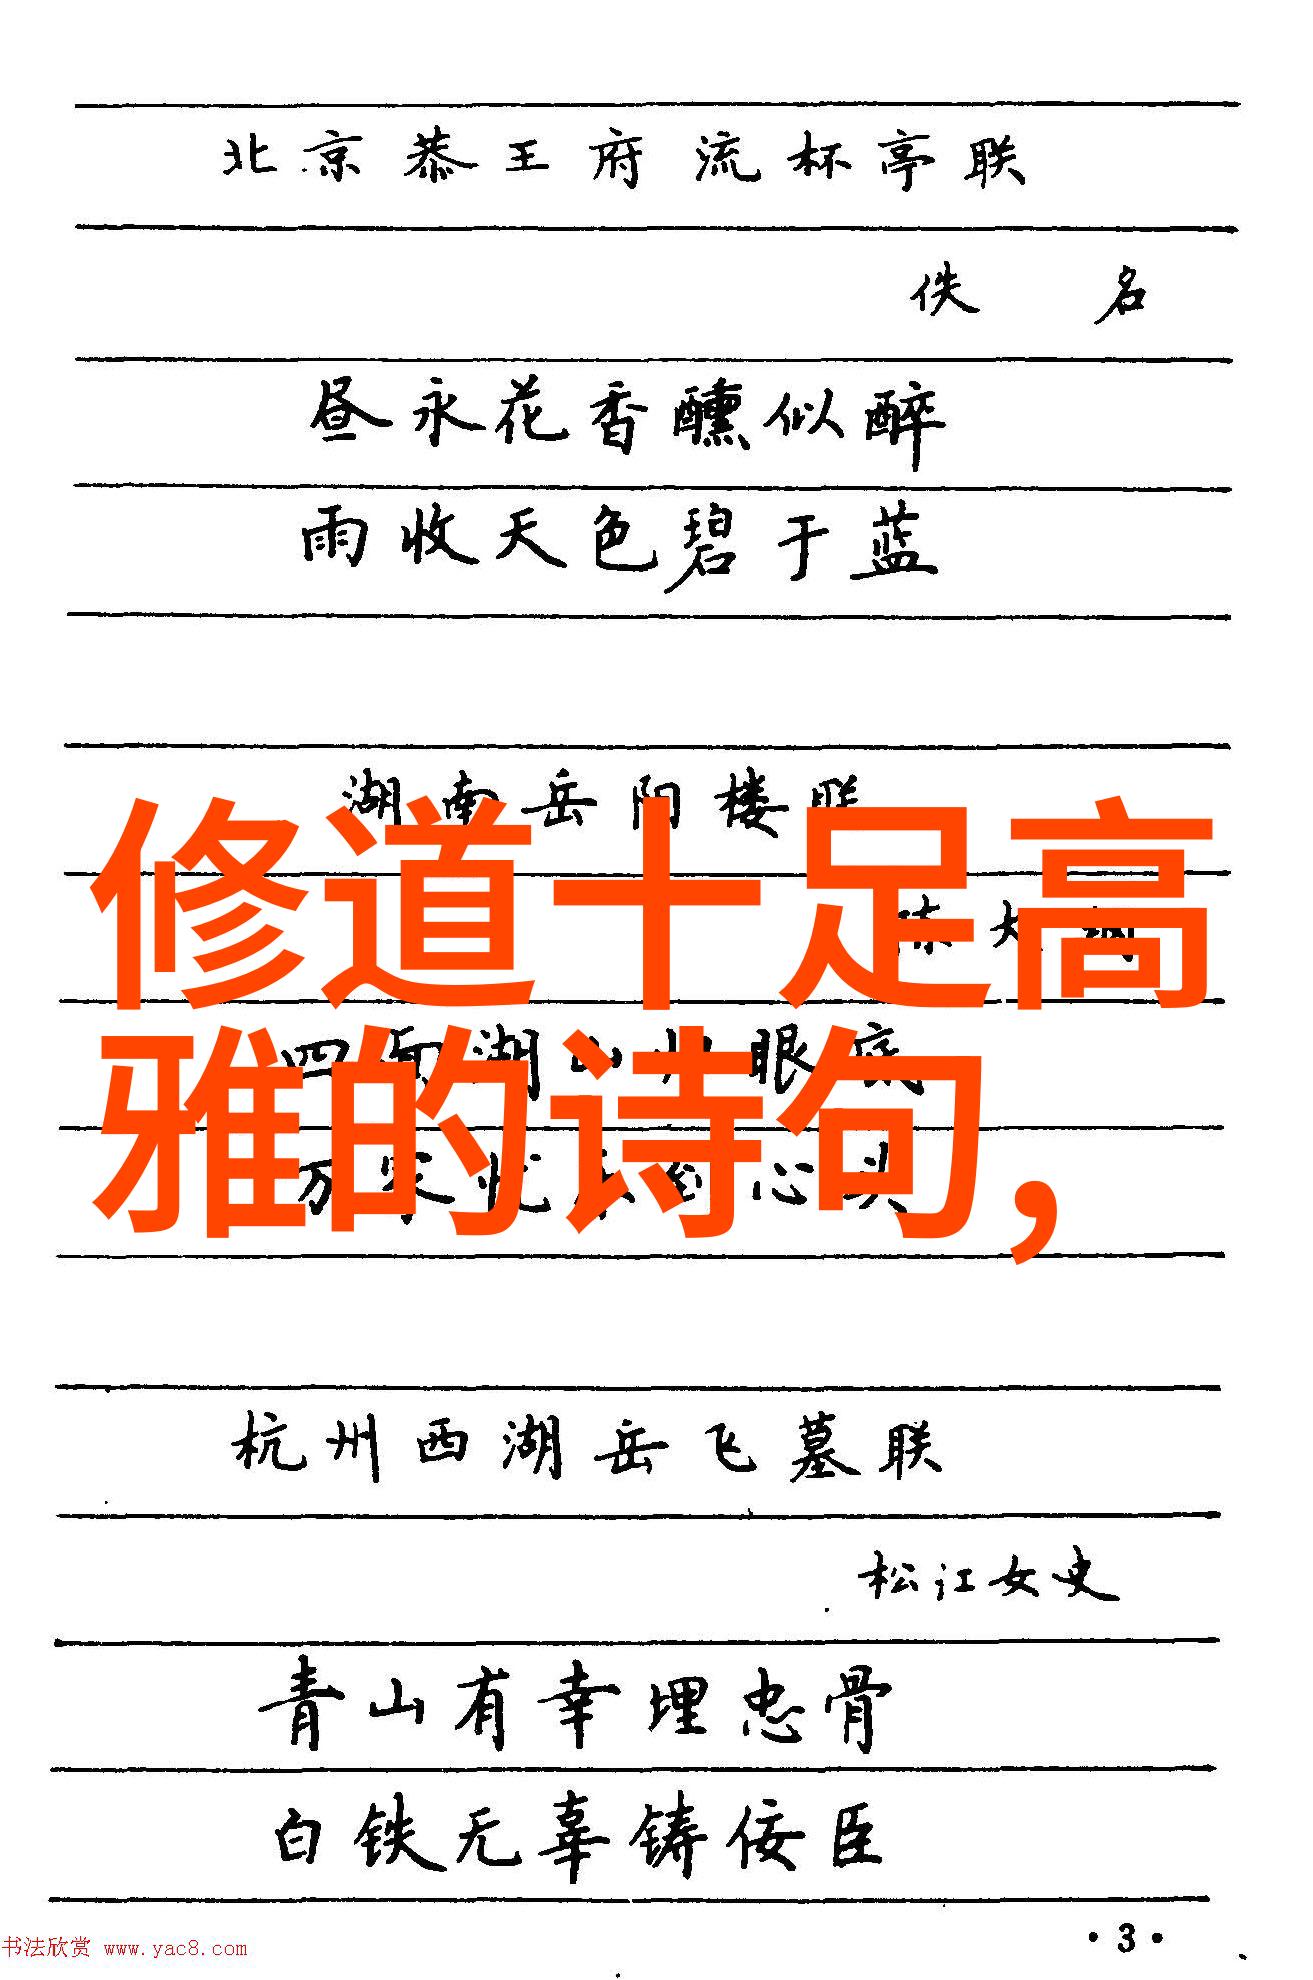 北京恭王府流杯亭联
佚 名
昼永花香醺似醉
雨收天色碧于蓝
湖南岳阳楼联
修道十足高
雅的诗句,
心头
杭州西湖岳飞墓联
松江女史
青山有幸埋忠骨
白铁无辜铸佞臣
·3·
书法欣赏 www.yac8.com